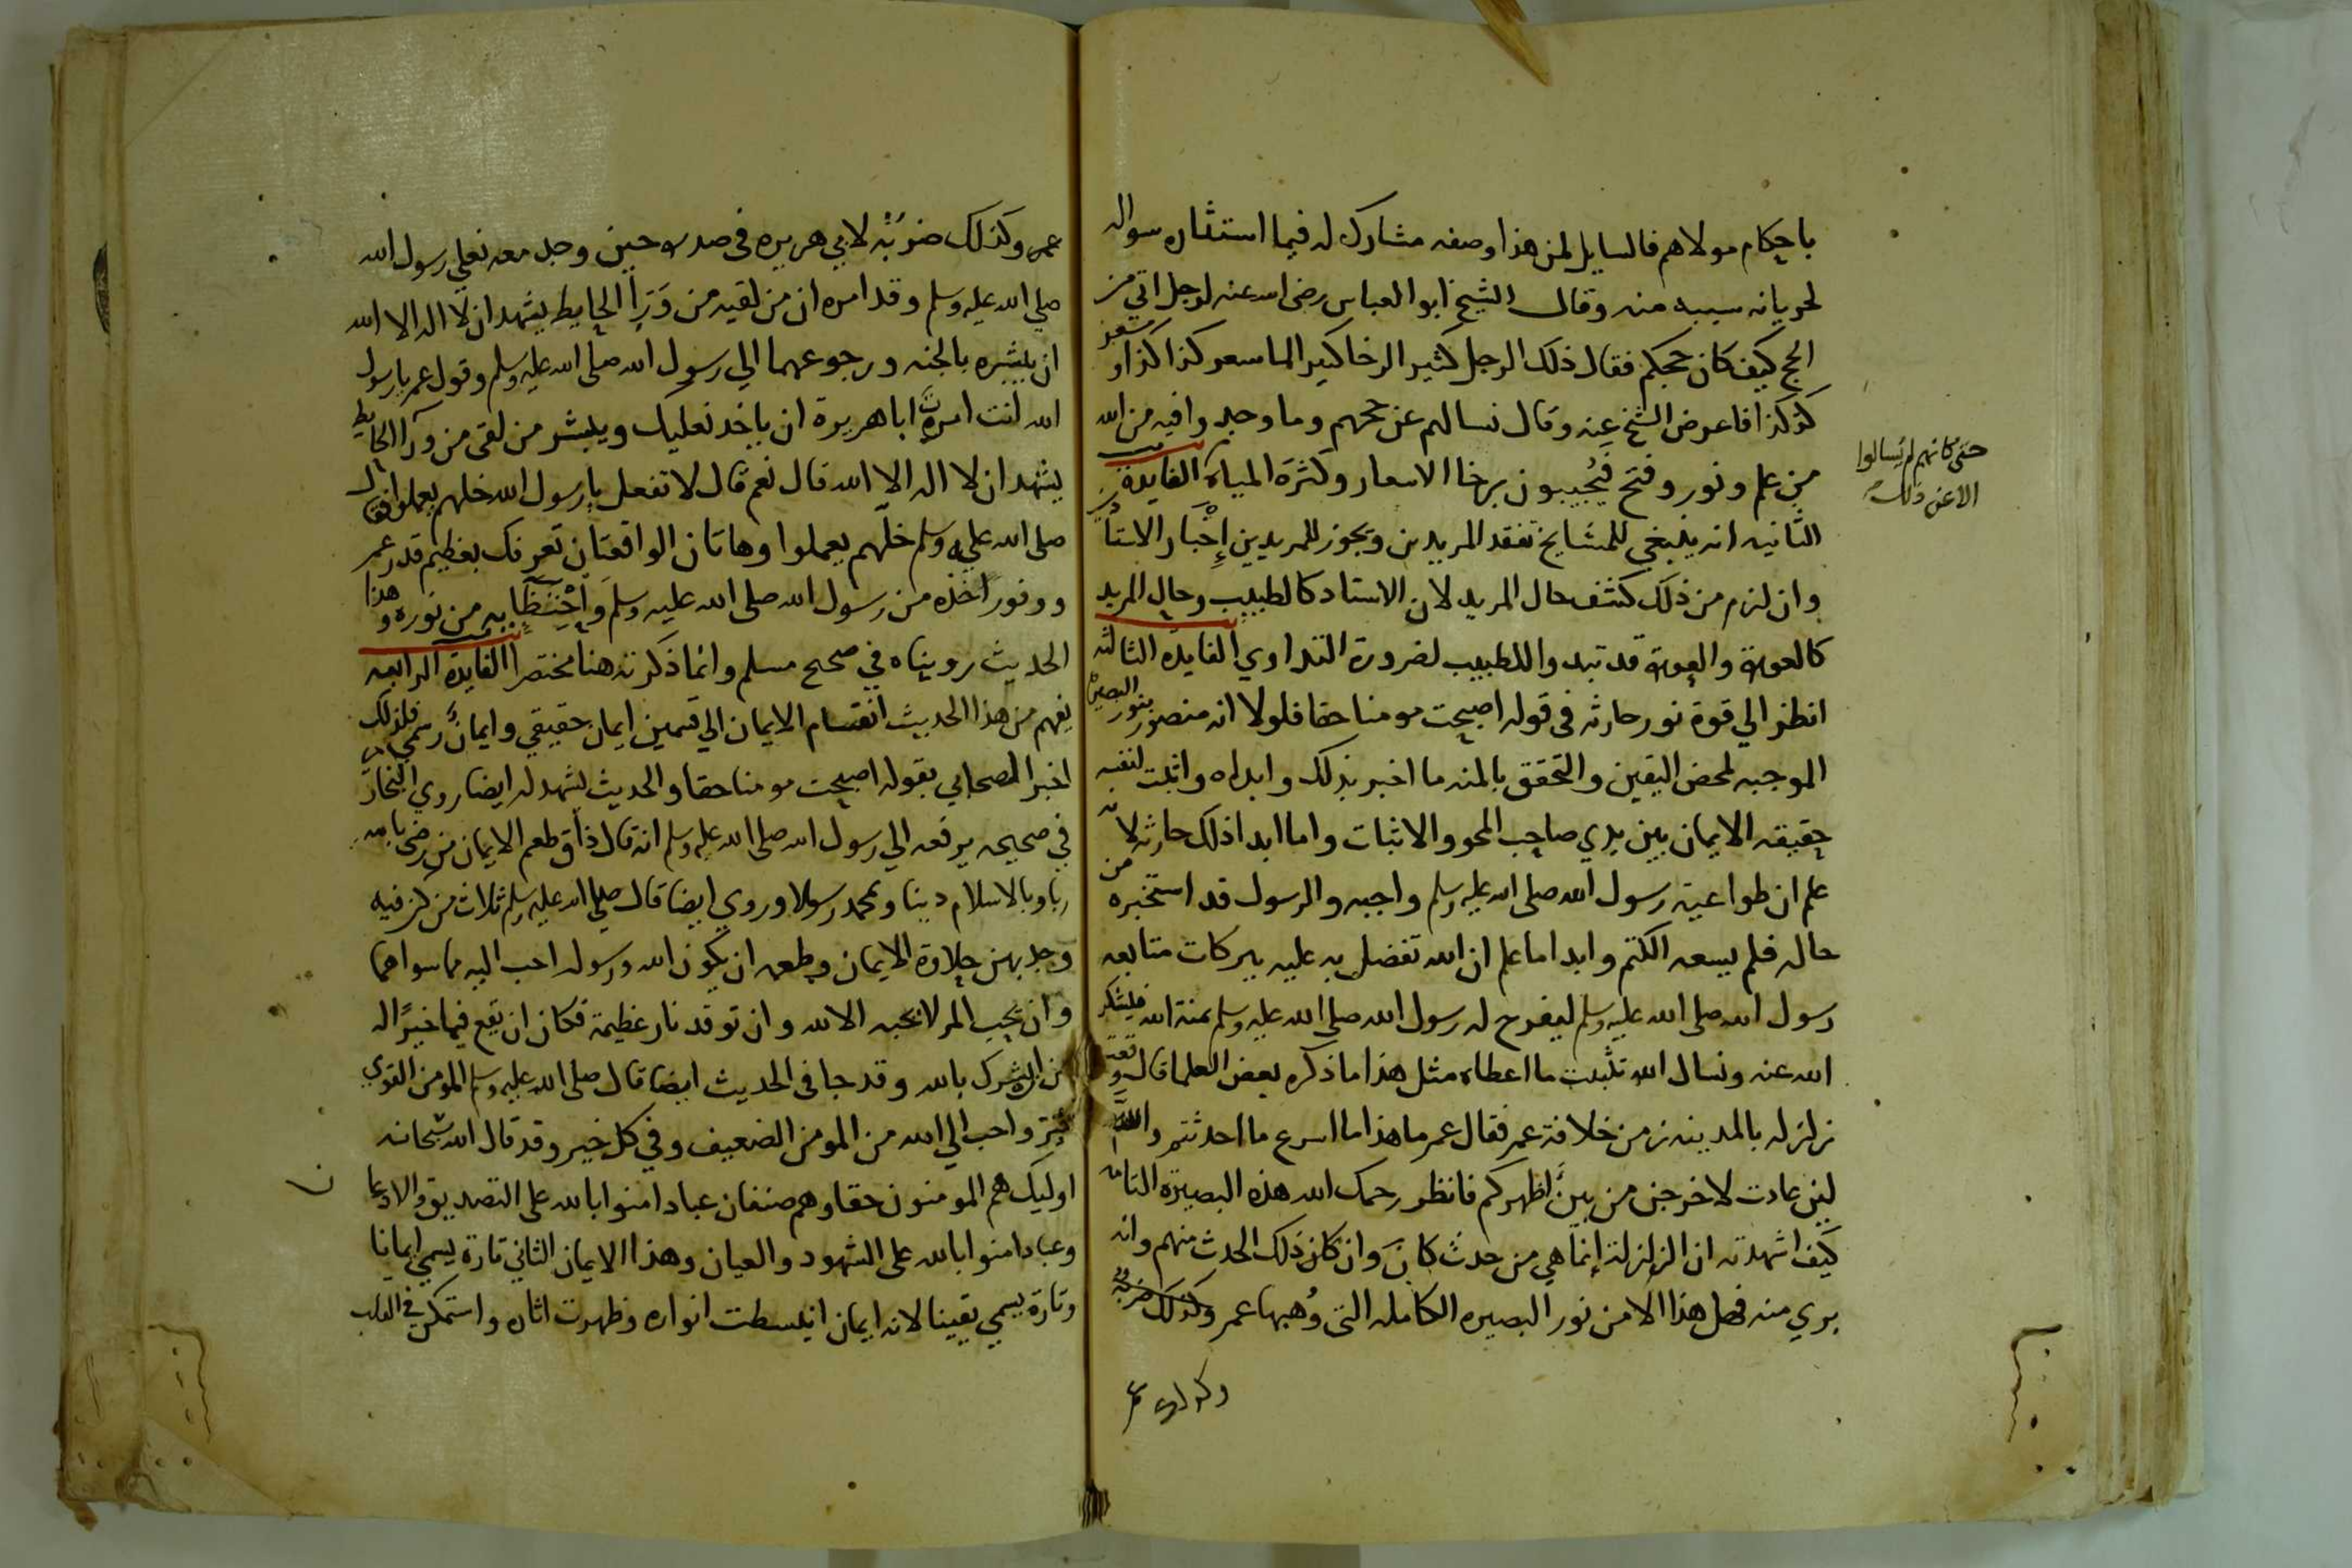 باحكام مولاهم فالسايل لمن هذا وصفه مشارك له فيما استثاره سواله
لجريانه سببه منه وقال الشيخ ابو العباس رضى الله عنه لرجل اتي من
الحج كيف كان حجكم فقال ذلك الرجل كثير الرخا كثير الما سعر كذا كذا وسعر
كذا كذا فاعرض الشيخ عنه وقال نسالهم عن حجهم وما وجدوا فيه من الله
من علم ونور وفتح فيُجيبون برخا الاسعار وكثرة المياه الفايدة
حتى كانهم لم يسالوا
الا عن ذلك
الثانيه انه ينبغي للمشايخ تفقد المريدين ويجوز للمريدين إخبار الاستاد
وان لزم من ذلك كشف حال المريد لان الاستاد كالطبيب وحال المريد
كالعورة والعورة قد تبدوا للطبيب لضرورة التداوي الفايده الثالثه
انظر الي قوة نور حارثه في قوله اصبحت مومنا حقا فلولا انه منصور بنور البصيرة
الموجبه لمحض اليقين والتحقق بالمنه ما اخبر بذلك وابداه واثبت لنفسه
حقيقه الايمان بين يدي صاحب المحو والاثبات واما ابدا ذلك حارثه لانه
علم ان طواعية رسول الله صلى الله عليه وسلم واجبه والرسول قد استخبره من
حاله فلم يسعه الكتم وابدا ما علم ان الله تفضل به عليه ببركات متابعه
رسول الله صلى الله عليه وسلم ليفرح له رسول الله صلى الله عليه وسلم بمنة الله فليشكر
الله عنه ونسال الله تثبيت ما اعطاه مثل هذا ما ذكره بعض العلما قال وقعت
زلزله بالمدينه زمن خلافة عمر فقال عمر ما هذا ما اسرع ما احدثتم والله
لين عادت لاخرجن من بين اظهركم فانظر رحمك الله هذه البصيرة التامه
كيف اشهدته ان الزلزلة إنما هي من حدث كان وان كان ذلك الحدث منهم وانه
بري منه فهل هذا الا من نور البصيره الكامله التى وُهبها عمر وكذلك ضربه
وكذلك
عمر وكذلك ضربَتُه لابي هريره في صدره حين وجد معه نعلي رسول الله
صلي الله عليه وسلم وقد امره ان من لقيه من وَرَاٱ الحايط يشهد ان لا اله الا الله
ان يبشره بالجنه ورجوعهما الي رسول الله صلى الله عليه وسلم وقول عمر يا رسول
الله انت امرت ابا هريرة ان ياخد نعليك ويبشر من لقى من ورآ الحايط
يشهد ان لا اله الا الله قال نعم قال لا تفعل يا رسول الله خلهم يعملوا فقال
صلى الله عليه وسلم خلّهم يعملوا وهاتان الواقعتان تعرفك بعظيم قدر عمر
ووفور اخذه من رسول الله صلى الله عليه وسلم واحتظايه من نوره وهذا
الحديث رويناه في صحيح مسلم وانما ذكرته هنا مختصرا الفايدة الرابعه
يفهم من هذا الحديث انقسام الايمان الي قسمين ايمان حقيقي وايمان رسمي فلذلك
اخبر الصحابي بقوله اصبحت مومنا حقا والحديث يشهد له ايضا روي البخاري
في صحيحه يرفعه الي رسول الله صلى الله عليه وسلم انه قال ذاق طعم الايمان من رضي بالله
ربا وبالاسلام دينا وبمحمد رسولا وروي ايضا قال صلى الله عليه وسلم ثلاث من كن فيه
وجد بهن حلاوة الايمان وطعمه ان يكون الله ورسوله احب اليه مما سواهما
وان يحب المر لا يحبه الا لله وان توقد نار عظيمة فكان ان يقع فيها خيرًا له
من الشرك بالله وقد جا في الحديث ايضا قال صلى الله عليه وسلم المومن القوي
خير واحب الي الله من المومن الضعيف وفي كل خير وقد قال الله سبحانه
اوليك هم المومنون حقا وهم صنفان عباد امنوا بالله على التصديق والاذعان
وعباد امنوا بالله على الشهود والعيان وهذا الايمان الثاني تارة يسمي ايمانا
وتارة يسمي يقينا لانه ايمان انبسطت انواره وظهرت اثاره واستمكن في القلب